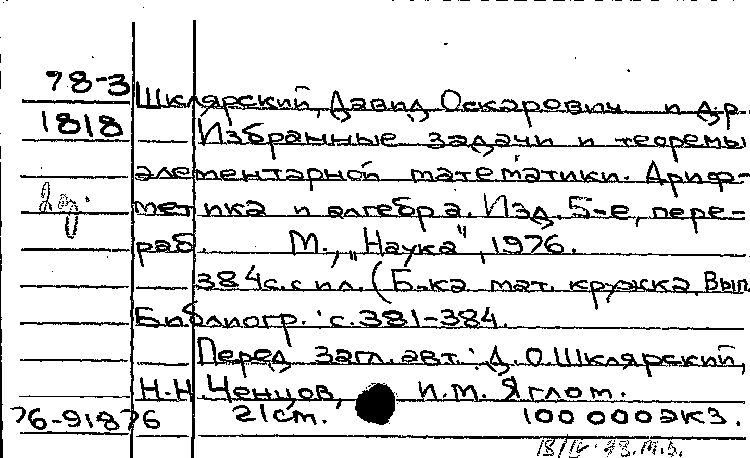 78-3
Шклярский, Давид Оскарович и др.
1818
Избранные задачи и теоремы
элементарной математики. Ариф-
метика и алгебра. Изд. 5-е, пере-
раб. М., „Наука", 1976.
384с. с ил. (Б-ка мат. кружка. Вып
Библиогр.: с. 381-384.
Перед загл. авт.: Д. О. Шклярский,
Н. Н. Ченцов, И. М. Яглом.
76-91876 21см. 100 000 экз.